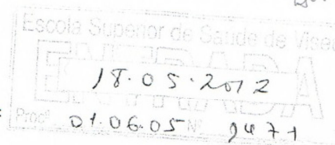 Escola Superior de Saúde de Viseu
ENTRADA
18.05.2012
Procº 01.06.05 Nº 9471